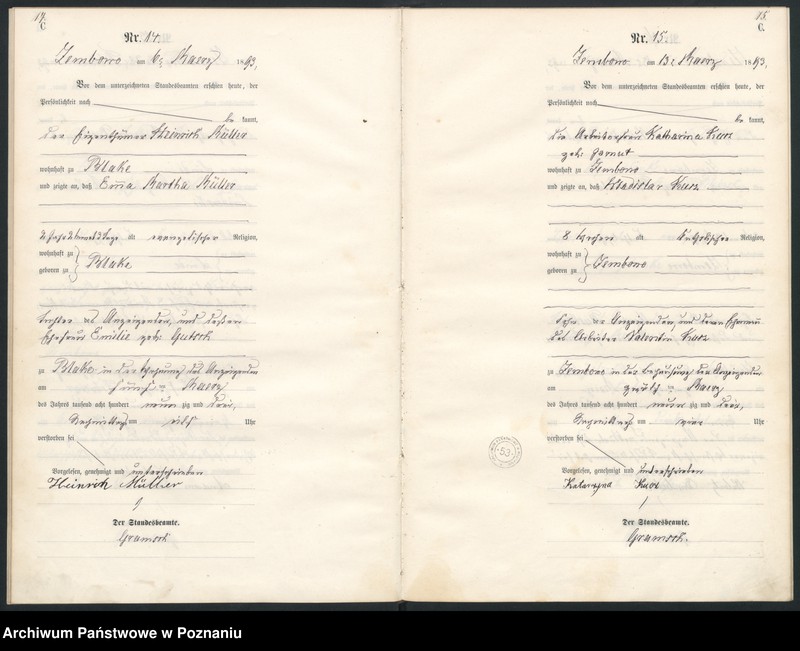 14.
C
Nr. 14.
Zembowo am 6ten Maerz 1893.
Vor dem unterzeichneten Standesbeamten erschien heute, der
Persönlichkeit nach
be kannt,
der Eigenthümer Heinrich Müller
wohnhaft zu Blake
und zeigte an, daß Ema Martha Müller
alt evangelischer Religion,
wohnhaft zu
geboren zu Blake
Tochter des Anzeigenden, und dessen
Ehefrau Emilie geb: Gutsch
zu Blake in der Behausung des Anzeigenden
am fünf ten Maerz
des Jahres tausend acht hundert neun zig und drei,
Nachmittags um elf Uhr
verstorben sei
Vorgelesen, genehmigt und unterschrieben
Heinrich Müller
Der Standesbeamte.
Gramsch
15.
C.
Nr. 15.
Zembowo am 13ten Maerz 1893.
Vor dem unterzeichneten Standesbeamten erschien heute, der
Persönlichkeit nach
be kannt,
die Arbeiterfrau Katharina Kurz
geb:
wohnhaft zu Zembowo
und zeigte an, daß Wladislav Kurz
8 Wochen alt katholischer Religion,
wohnhaft zu
geboren zu Zembowo
Sohn der Anzeigenden, und deren Ehemann
des Arbeiter Valentin Kurz
zu Zembowo in der Behausung der Anzeigenden
am zwölf ten Maerz
des Jahres tausend acht hundert neun zig und drei,
Nachmittags um vier Uhr
verstorben sei
Vorgelesen, genehmigt und unterschrieben
Katarzyna Kurz
Der Standesbeamte.
Gramsch.
53
Archiwum Państwowe w Poznaniu